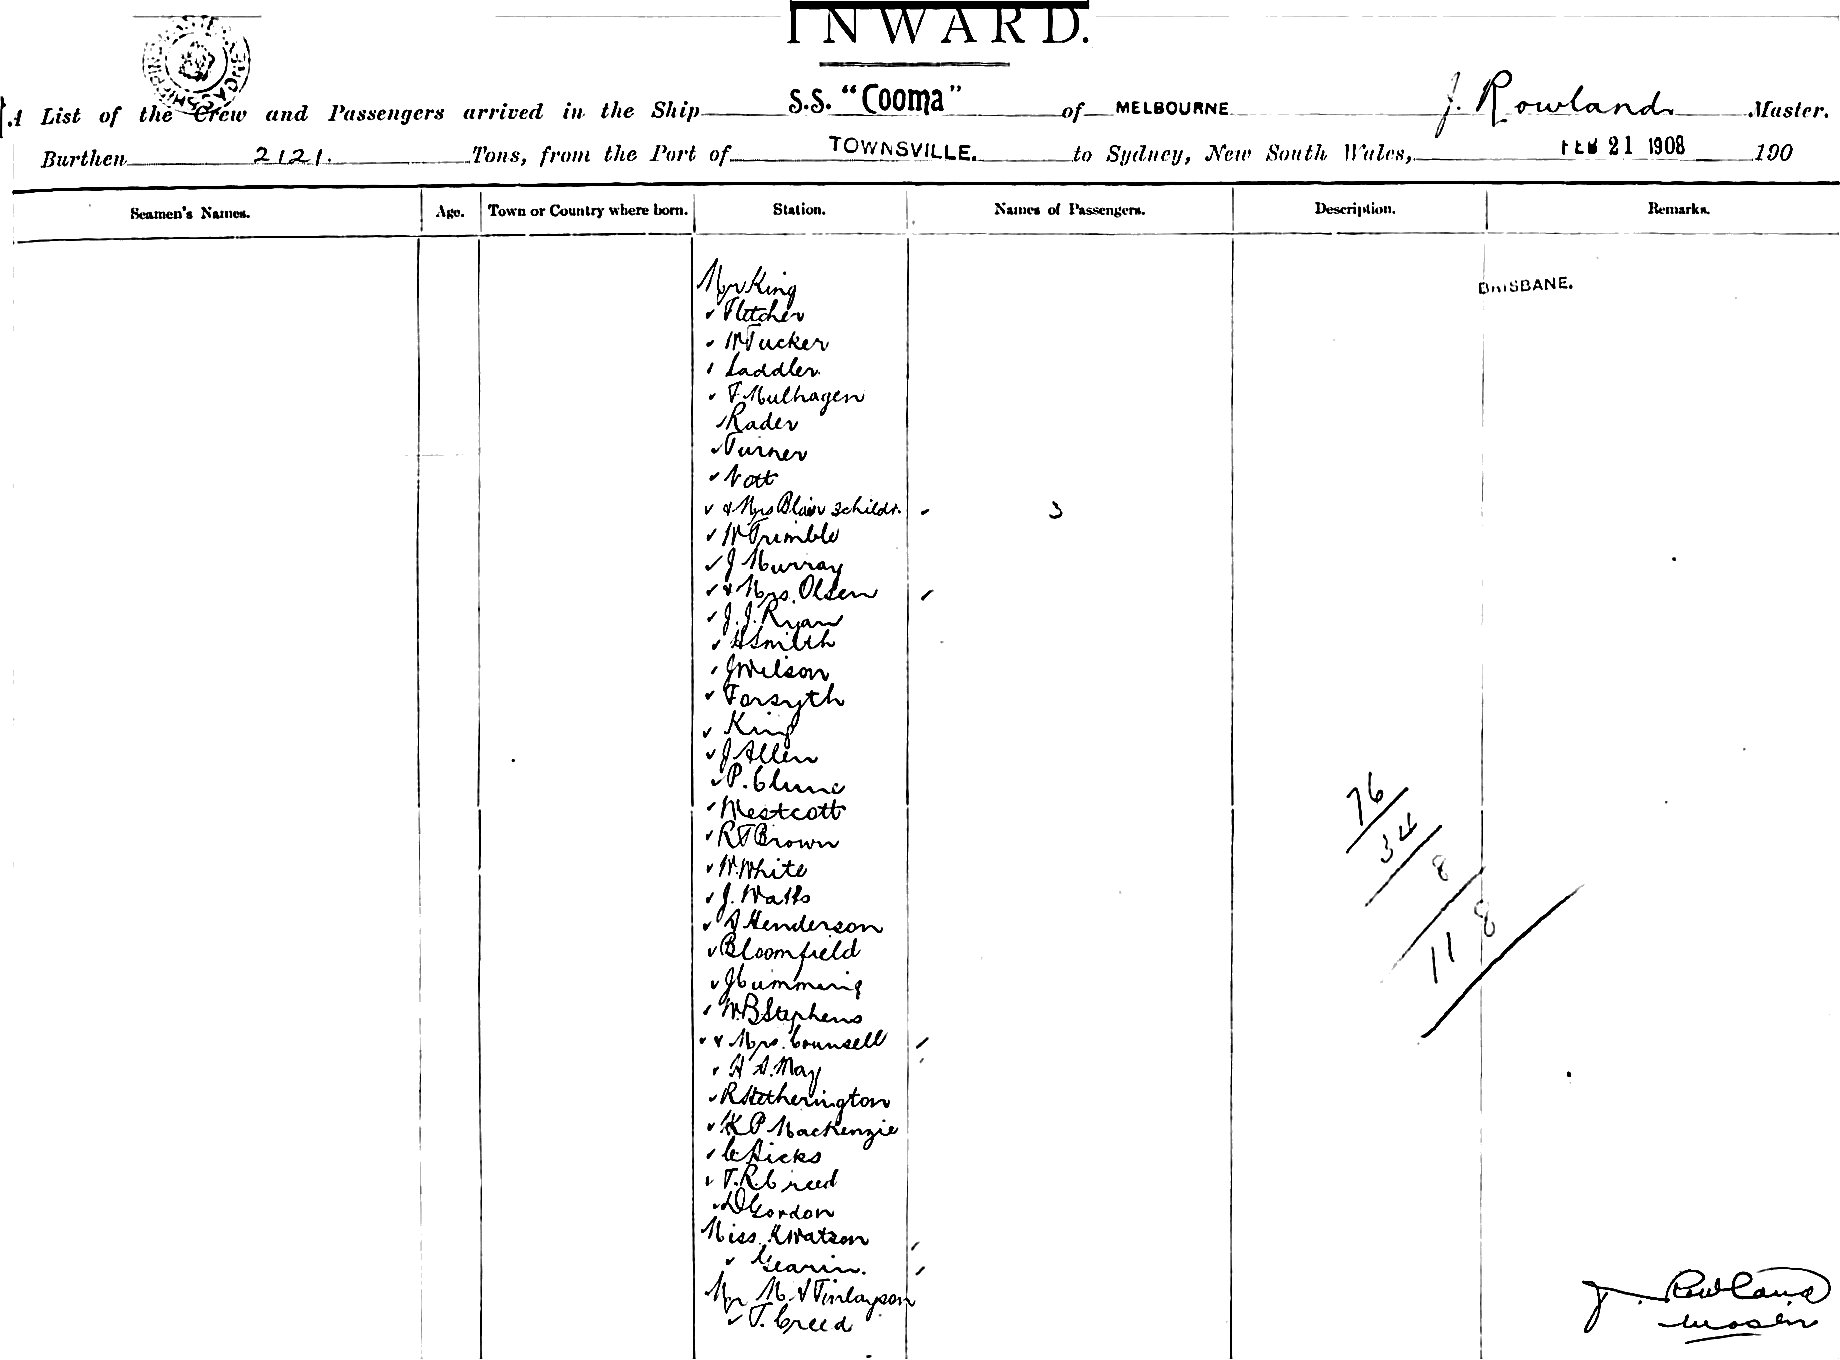 INWARD.
A List of the Crew and Passengers arrived in the Ship S.S. "Cooma" of MELBOURNE J. Rowland Master.
Burthen 2121. Tons, from the Port of TOWNSVILLE. to Sydney, New South Wales, FEB 21 1908 190
Seamen's Names. Age. Town or Country where born. Station. Names of Passengers. Description. Remarks.
Mr King BRISBANE.
" Fletcher
" W Tucker
" Saddler
" F. Mulhagen
Rader
" Turner
" Nott
" & Mrs Blair 3 childr. 3
" W Trimble
" J Murray
" & Mrs. Olsen
" J. J. Ryan
" H Smith
" J Wilson
" Forsyth
" King
" J Allen
" P. Clune
" Westcott
" R T Brown
" W. White
" J. Watts
" A Henderson
" Bloomfield
" J Cumming
" W. B Stephens
" & Mrs. Counsell
" H A. May
" R Hetherington
" K P Mackenzie
" C Hicks
" T. R. Creed
" D Gordon
Miss K Watson
" Gearin.
Mr M. & Finlayson
" T. Creed
76
34
8
118
J. Rowland
Master